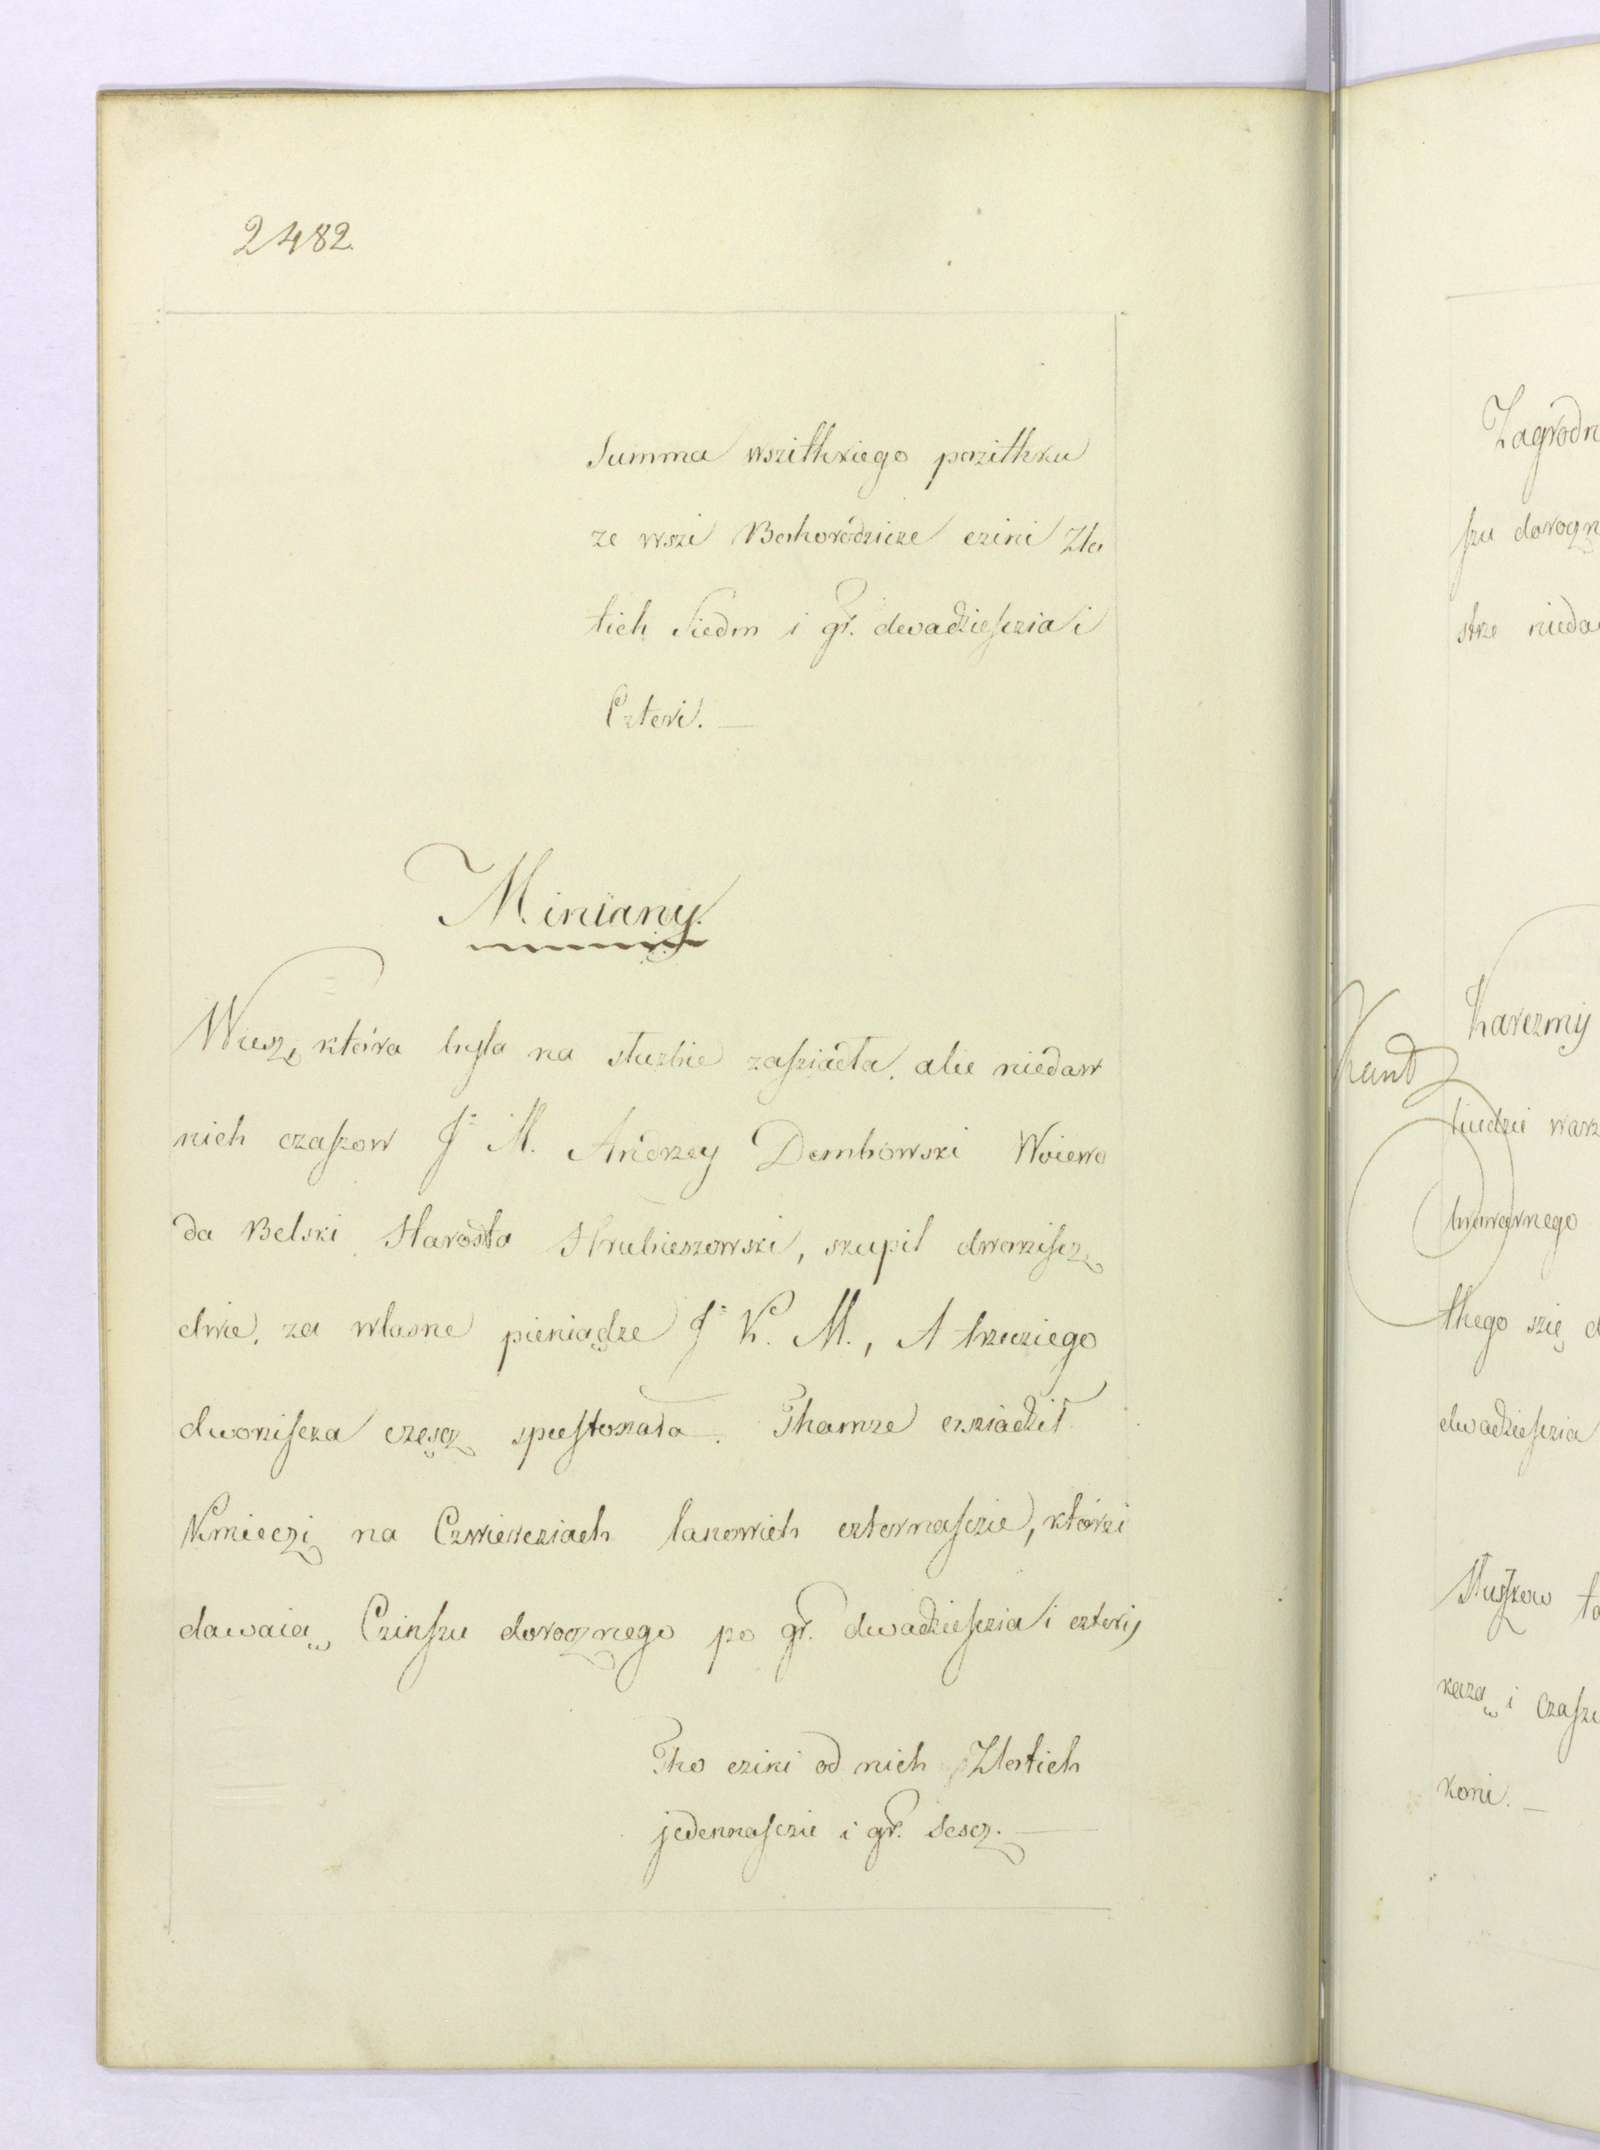 2482.
Summa wszithkiego pozithku
ze wszi Bohorodzicze czini Zło
tich Siedm i gr. dwadziesczia i
Czteri. —
Miniany.
Wiesz, która byla na słuzbie zasziadła, alie niedaw
nich czaszow J. M. Andrzey Dembowski Woiewo
da Belski Starosta Hrubieszowski, szupil dworzisz
dwie, za własne pieniądze J. K. M., A trzecziego
dworiscza częscz spustoszała. Thamze osziadził
Kmieczi na Czwierciach lanowich czternasczie, którzi
dawaią Czinszu dorocznego po gr. dwadziesczia i czterij
Tho czini od nich Złotich
jedennasczie i gr. Sescz. —
Zagrodn
szu doroczn
strze nieda
Karczmy
liudzie warz
browarnego
thego szię d
dwadziesczia
koni. —